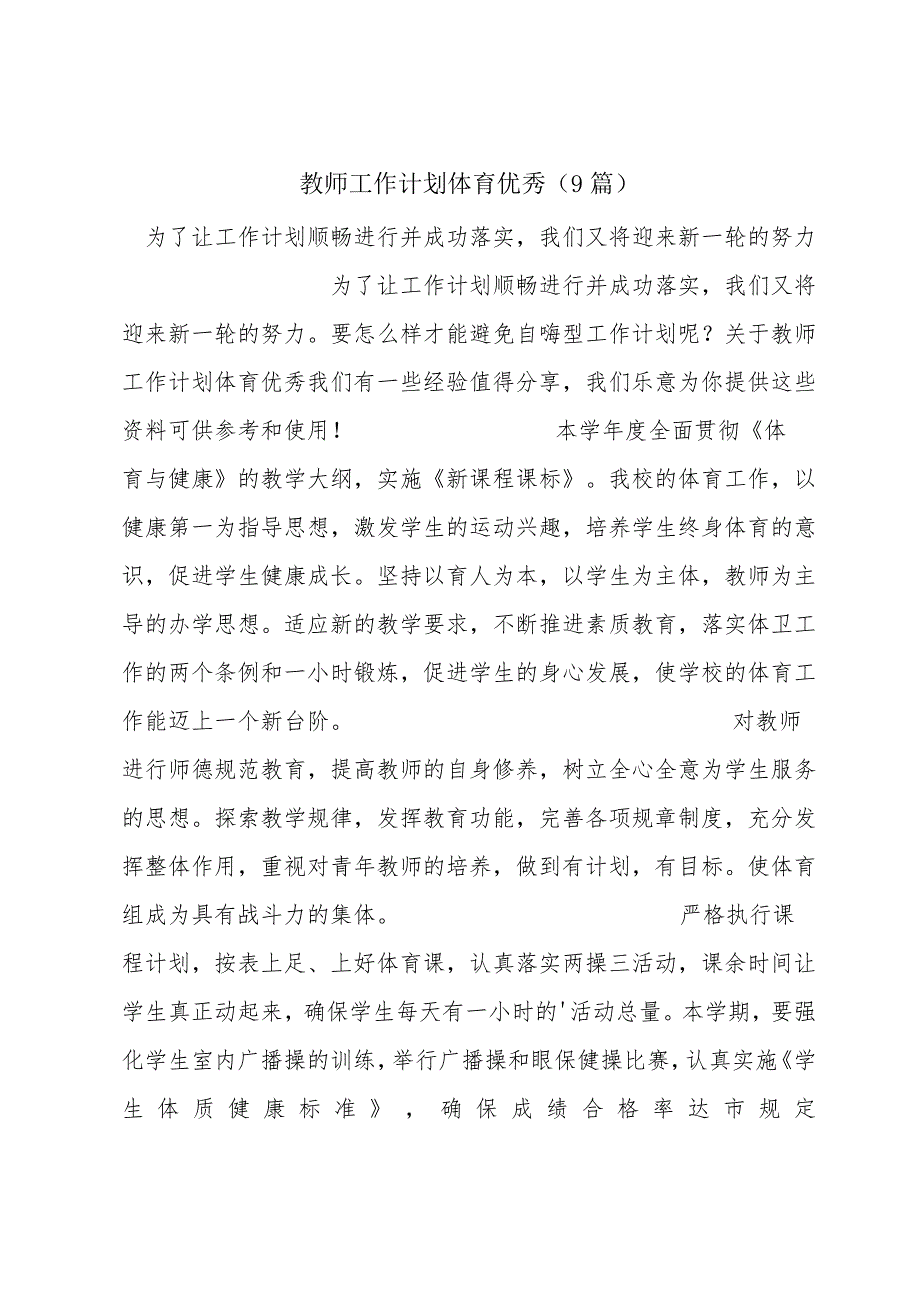 教师工作计划体育优秀（9 篇）
为了让工作计划顺畅进行并成功落实，我们又将迎来新一轮的努力
为了让工作计划顺畅进行并成功落实，我们又将
迎来新一轮的努力。要怎么样才能避免自嗨型工作计划呢？关于教师
工作计划体育优秀我们有一些经验值得分享，我们乐意为你提供这些
资料可供参考和使用！ 本学年度全面贯彻《体
育与健康》的教学大纲，实施《新课程课标》。我校的体育工作，以
健康第一为指导思想，激发学生的运动兴趣，培养学生终身体育的意
识，促进学生健康成长。坚持以育人为本，以学生为主体，教师为主
导的办学思想。适应新的教学要求，不断推进素质教育，落实体卫工
作的两个条例和一小时锻炼，促进学生的身心发展，使学校的体育工
作能迈上一个新台阶。 对教师
进行师德规范教育，提高教师的自身修养，树立全心全意为学生服务
的思想。探索教学规律，发挥教育功能，完善各项规章制度，充分发
挥整体作用，重视对青年教师的培养，做到有计划，有目标。使体育
组成为具有战斗力的集体。 严格执行课
程计划，按表上足、上好体育课，认真落实两操三活动，课余时间让
学生真正动起来，确保学生每天有一小时的'活动总量。本学期，要强
化学生室内广播操的训练，举行广播操和眼保健操比赛，认真实施《学
生体质健康标准》，确保成绩合格率达市规定